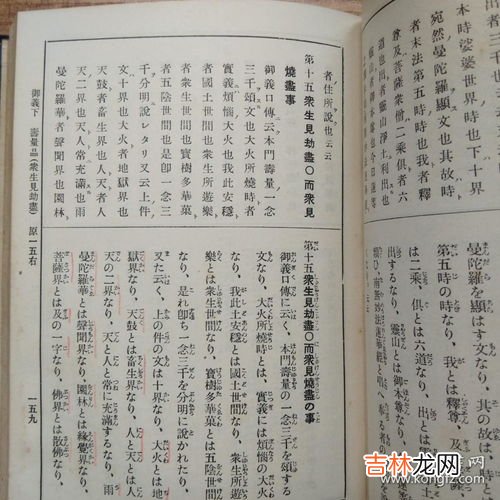 者住所說也云云
第十五衆生見劫盡〇而衆見
燒盡事
御義口傳云本門壽量一念
三千頌文也大火所燒時者
實義煩惱大火也我此土安穩
者國土世間也衆生所遊樂
者衆生世間也寶樹多華菓
者五陰世間也是卽一念三
千分明說レタリ又云上件
文十界也大火者地獄界也
天鼓者畜生界也人天者人
天二界也天人常充滿也雨
曼陀羅華者聲聞界也園林
第十五衆生見劫盡〇而衆見燒盡の事
御義口傳に云く、本門壽量の一念三千を頌する
文なり、大火所燒時とは、實義には煩惱の大火
なり、我此土安穩とは國土世間なり、衆生所遊
樂とは衆生世間なり、寶樹多華菓とは五陰世間
なり、是れ卽ち一念三千を分明に說かれたり、
又た云く、上の件の文は十界なり、大火とは地
獄界なり、天鼓とは畜生界なり、人と天とは人
天の二界なり、天と人と常に充滿するなり、雨
曼陀羅華とは聲聞界なり、園林とは緣覺界なり、
菩薩界とは及の一字なり、佛界とは散佛なり、
御義下 壽量品(衆生見劫盡) 原一五右
一五九
出者
下時娑婆世界時也
宛然曼陀羅顯文也其故時
者末法第五時時也我者釋
尊及菩薩衆僧二乘俱者六
道也出者靈山淨土利出也
曼陀羅を顯はす文なり、其故は
第五時の時なり、我とは釋尊、及
は二乘、俱とは六道なり、出とは
出するなり、靈山とは御本尊なり、
吉林龙网
www.kongfz.com